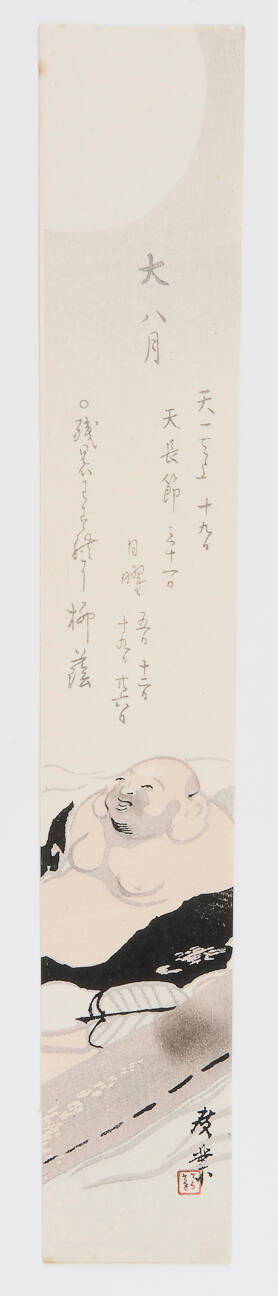 大八月
天一天上 十九日
天長節 三十一日
日曜 五日 十二日
十九日 廿六日
○残暑 柳蔭